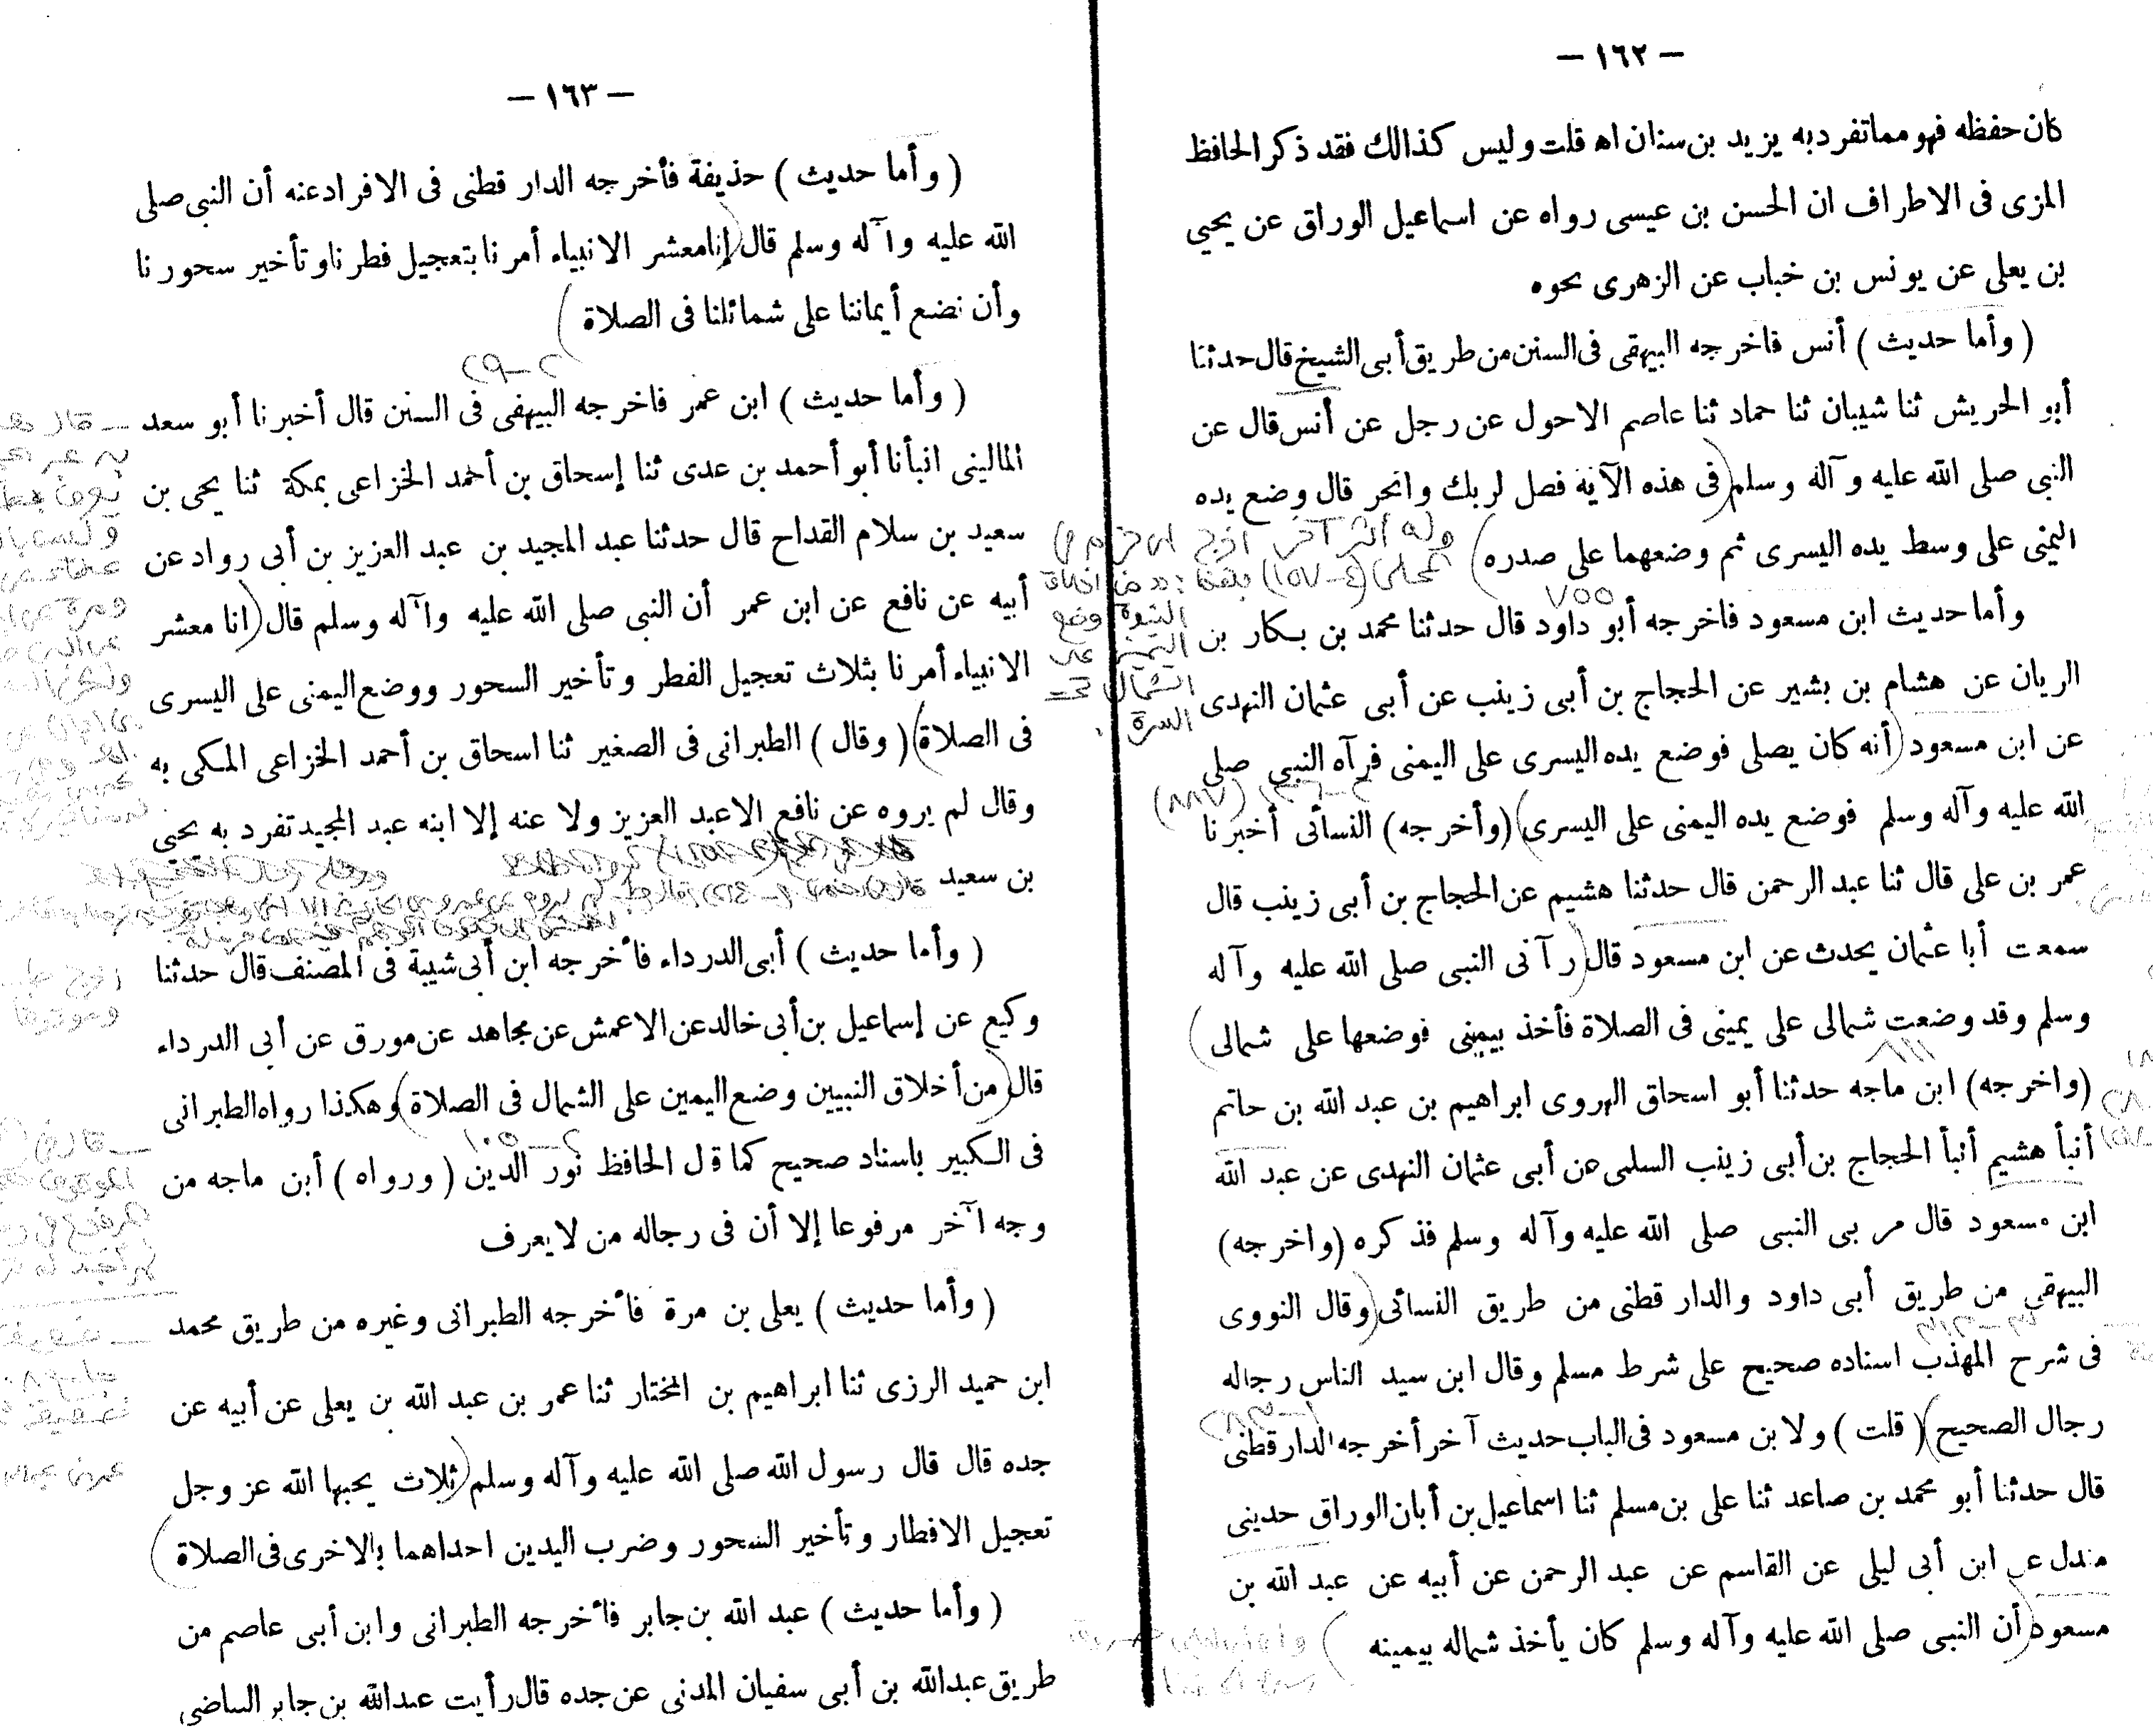 — ١٦٢ —
كان حفظه فهو مما تفرد به يزيد بن سنان اه قلت وليس كذالك فقد ذكر الحافظ
المزى فى الاطراف ان الحسن بن عيسى رواه عن اسماعيل الوراق عن يحيي
بن يعلى عن يونس بن خباب عن الزهرى نحوه
( وأما حديث ) أنس فاخرجه البيهقى فى السنن من طريق أبى الشيخ قال حدثنا
أبو الحريش ثنا شيبان ثنا حماد ثنا عاصم الاحول عن رجل عن أنس قال عن
النبى صلى الله عليه وآله وسلم (فى هذه الآية فصل لربك وانحر قال وضع يده
اليمنى على وسط يده اليسرى ثم وضعهما على صدره )
وله أثر آخر أخرج ابن حزم في
المحلى (٤-١٥٧)
النبوة وضع
اليمين على
الشمال تحت
السرة .
٧٥٥
وأما حديث ابن مسعود فاخرجه أبو داود قال حدثنا محمد بن بكار بن
الريان عن هشام بن بشير عن الحجاج بن أبى زينب عن أبى عثمان النهدى
عن ابن مسعود (أنه كان يصلى فوضع يده اليسرى على اليمنى فرآه النبي صلى
(٨٨٧)
الله عليه وآله وسلم فوضع يده اليمنى على اليسرى) (وأخرجه) النسائى أخبرنا
عمر بن على قال ثنا عبد الرحمن قال حدثنا هشيم عن الحجاج بن أبى زينب قال
سمعت أبا عثمان يحدث عن ابن مسعود قال (رآنى النبى صلى الله عليه وآله
وسلم وقد وضعت شمالى على يمينى فى الصلاة فأخذ بيمينى فوضعها على شمالى )
٨١١
(واخرجه) ابن ماجه حدثنا أبو اسحاق الهروى ابراهيم بن عبد الله بن حاتم
أنبأ هشيم أنبأ الحجاج بن أبى زينب السلمى عن أبى عثمان النهدى عن عبد الله
ابن مسعود قال مر بى النبى صلى الله عليه وآله وسلم فذكره (واخرجه)
البيهقى من طريق أبى داود والدار قطنى من طريق النسائى (وقال النووى
فى شرح المهذب اسناده صحيح على شرط مسلم وقال ابن سيد الناس رجاله
رجال الصحيح) ( قلت ) ولابن مسعود فى الباب حديث آخر أخرجه الدار قطنى
قال حدثنا أبو محمد بن صاعد ثنا على بن مسلم ثنا اسماعيل بن أبان الوراق حدينى
مندل عن ابن أبى ليلى عن القاسم عن عبد الرحمن عن أبيه عن عبد الله بن
مسعود (أن النبى صلى الله عليه وآله وسلم كان يأخذ شماله بيمينه )
— ١٦٣ —
( وأما حديث ) حذيفة فأخرجه الدار قطنى فى الافراد عنه أن النبى صلى
الله عليه وآله وسلم قال (إنا معشر الانبياء أمرنا بتعجيل فطرنا وتأخير سحورنا
وأن نضع أيماننا على شمائلنا فى الصلاة )
٢-٢٩
( وأما حديث ) ابن عمر فاخرجه البيهقى فى السنن قال أخبرنا أبو سعد
المالينى انبأنا أبو أحمد بن عدى ثنا إسحاق بن أحمد الخزاعى بمكة ثنا يحى بن
سعيد بن سلام القداح قال حدثنا عبد المجيد بن عبد العزيز بن أبى رواد عن
أبيه عن نافع عن ابن عمر أن النبى صلى الله عليه وآله وسلم قال (انا معشر
الانبياء أمرنا بثلاث تعجيل الفطر وتأخير السحور ووضع اليمنى على اليسرى
فى الصلاة) ( وقال ) الطبرانى فى الصغير ثنا اسحاق بن أحمد الخزاعى المكى به
وقال لم يروه عن نافع الا عبد العزيز ولا عنه إلا ابنه عبد المجيد تفرد به يحيى
بن سعيد
( وأما حديث ) أبى الدرداء فأخرجه ابن أبى شيبة فى المصنف قال حدثنا
وكيع عن إسماعيل بن أبى خالد عن الاعمش عن مجاهد عن مورق عن أبى الدرداء
قال (من أخلاق النبيين وضع اليمين على الشمال فى الصلاة) وهكذا رواه الطبرانى
٢-١٠٥
فى الكبير باسناد صحيح كما قل الحافظ نور الدين ( ورواه ) أبن ماجه من
وجه آخر مرفوعا إلا أن فى رجاله من لا يعرف
( وأما حديث ) يعلى بن مرة فأخرجه الطبرانى وغيره من طريق محمد
ابن حميد الرزى ثنا ابراهيم بن المختار ثنا عمر بن عبد الله بن يعلى عن أبيه عن
جده قال قال رسول الله صلى الله عليه وآله وسلم (ثلاث يحبها الله عز وجل
تعجيل الافطار وتأخير السحور وضرب اليدين احداهما بالاخرى فى الصلاة )
( وأما حديث ) عبد الله بن جابر فأخرجه الطبرانى وابن أبى عاصم من
طريق عبدالله بن أبى سفيان المدنى عن جده قال رأيت عبدالله بن جابر البياضى